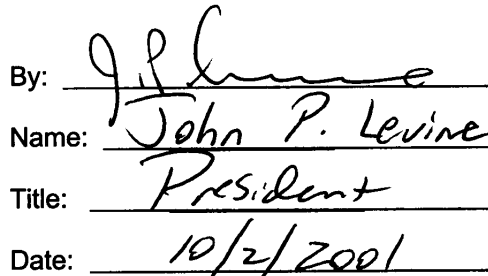 By:
Name: John P. Levine
Title: President
Date: 10/2/2001